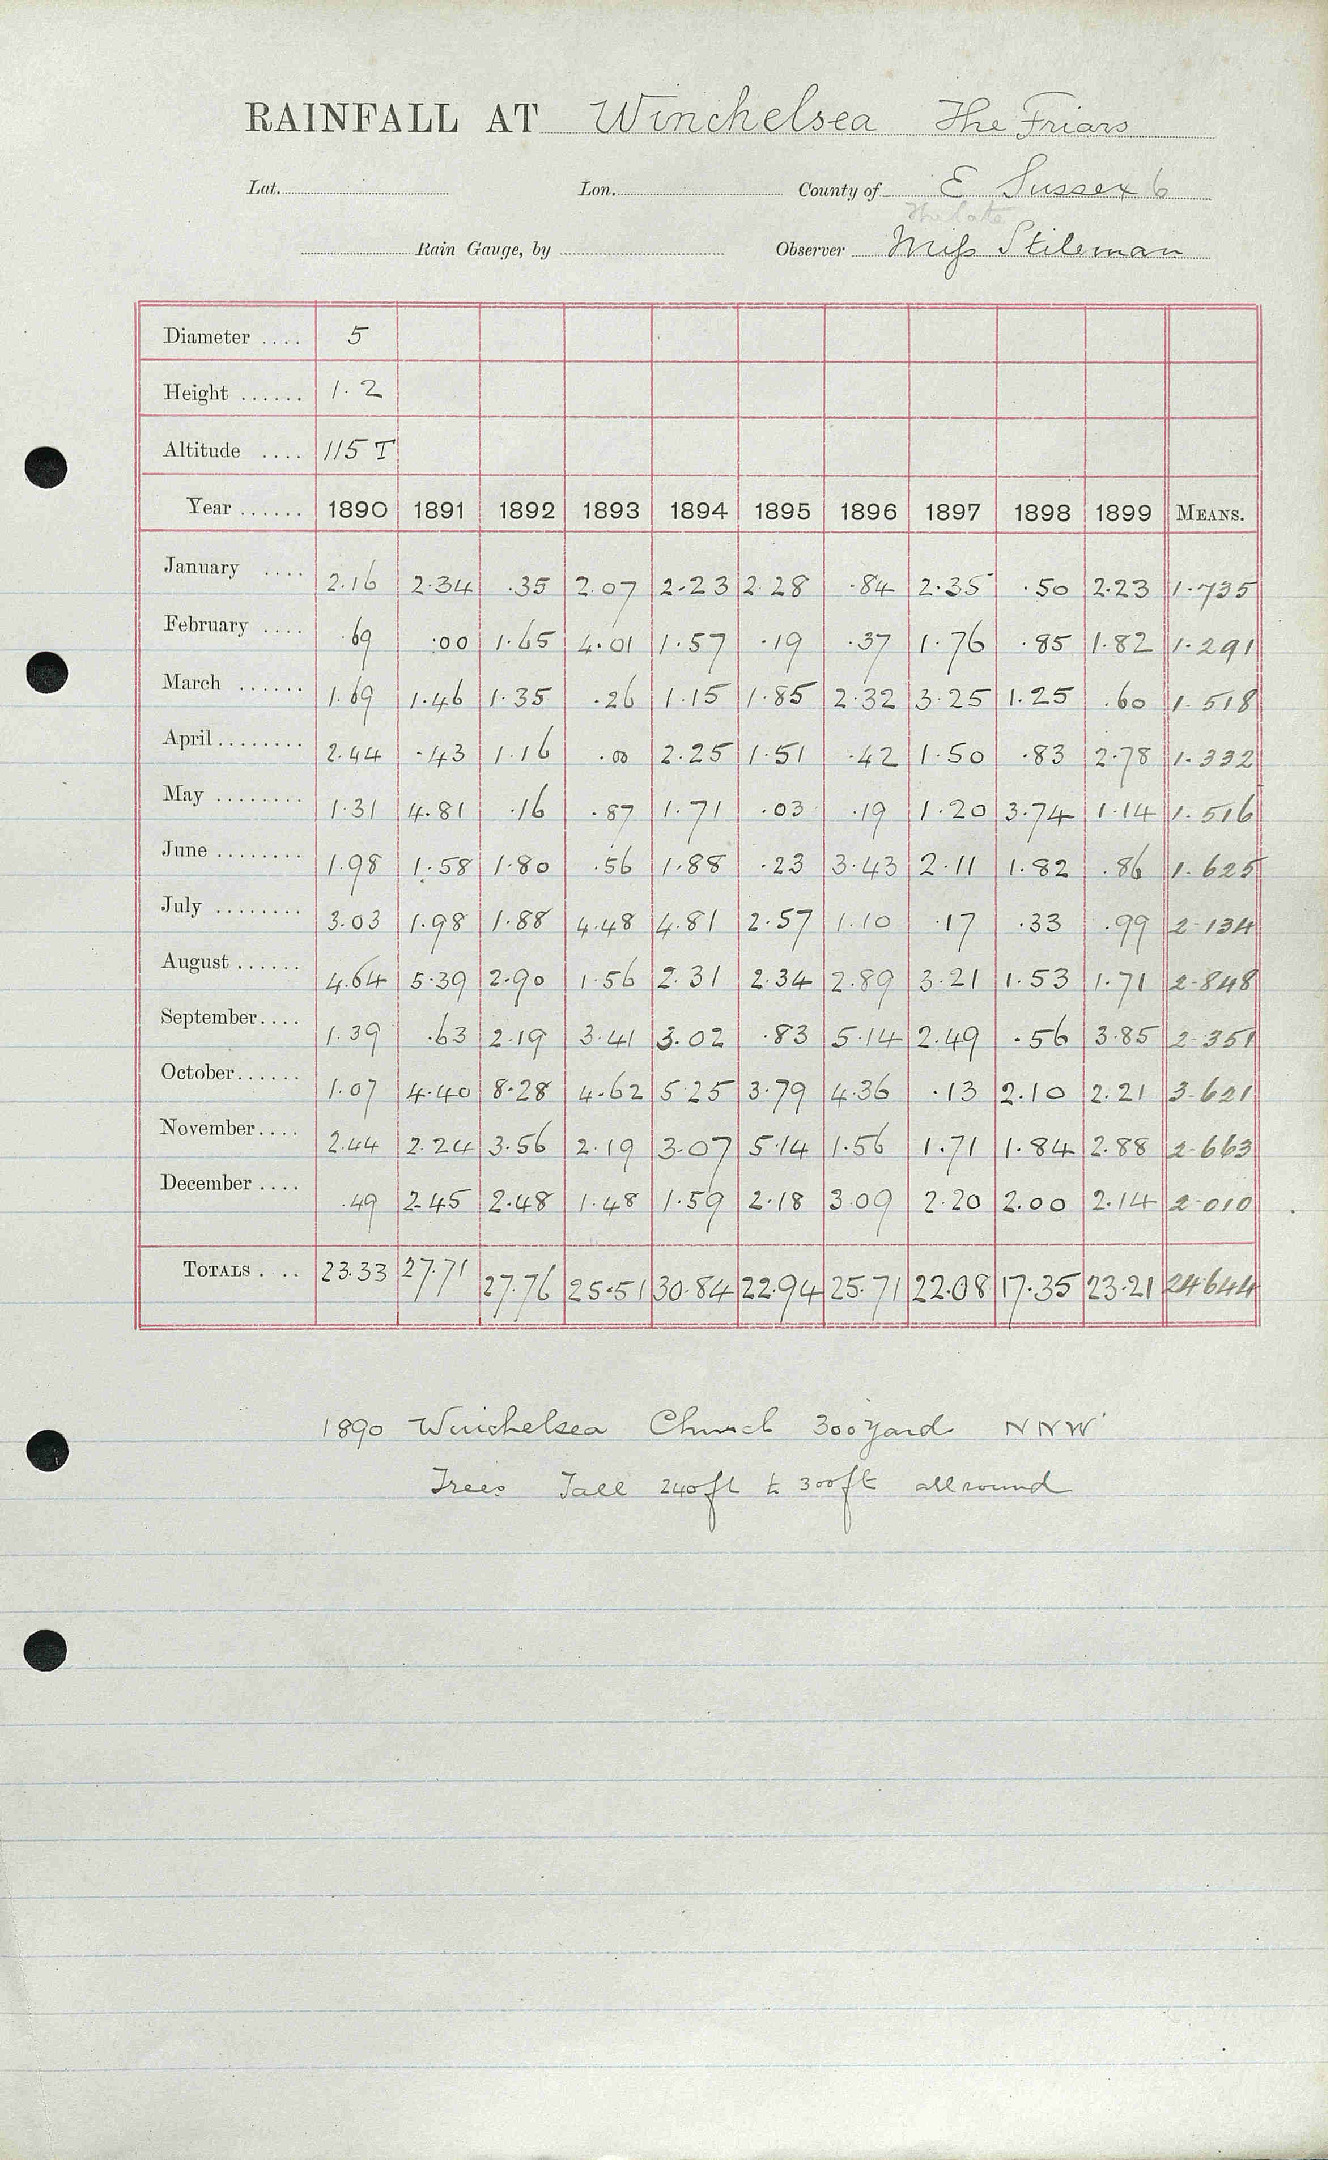 RAINFALL AT Winchelsea The Friars
Lat. Lon. County of E Sussex 6
The late
Rain Gauge, by Observer Miss Stileman
Diameter .... 5
Height ...... 1.2
Altitude .... 115 T
Year ...... 1890 1891 1892 1893 1894 1895 1896 1897 1898 1899 MEANS.
January .... 2.16 2.34 .35 2.07 2.23 2.28 .84 2.35 .50 2.23 1.735
February .... .69 .00 1.65 4.01 1.57 .19 .37 1.76 .85 1.82 1.291
March ...... 1.69 1.46 1.35 .26 1.15 1.85 2.32 3.25 1.25 .60 1.518
April ........ 2.44 .43 1.16 .00 2.25 1.51 .42 1.50 .83 2.78 1.332
May ........ 1.31 4.81 .16 .87 1.71 .03 .19 1.20 3.74 1.14 1.516
June ........ 1.98 1.58 1.80 .56 1.88 .23 3.43 2.11 1.82 .86 1.625
July ........ 3.03 1.98 1.88 4.48 4.81 2.57 1.10 .17 .33 .99 2.134
August ...... 4.64 5.39 2.90 1.56 2.31 2.34 2.89 3.21 1.53 1.71 2.848
September .... 1.39 .63 2.19 3.41 3.02 .83 5.14 2.49 .56 3.85 2.351
October ...... 1.07 4.40 8.28 4.62 5.25 3.79 4.36 .13 2.10 2.21 3.621
November .... 2.44 2.24 3.56 2.19 3.07 5.14 1.56 1.71 1.84 2.88 2.663
December .... .49 2.45 2.48 1.48 1.59 2.18 3.09 2.20 2.00 2.14 2.010
TOTALS . .. 23.33 27.71 27.76 25.51 30.84 22.94 25.71 22.08 17.35 23.21 24644
1890 Winchelsea Church 300 yards NNW
Trees Tall 240ft to 300ft all round